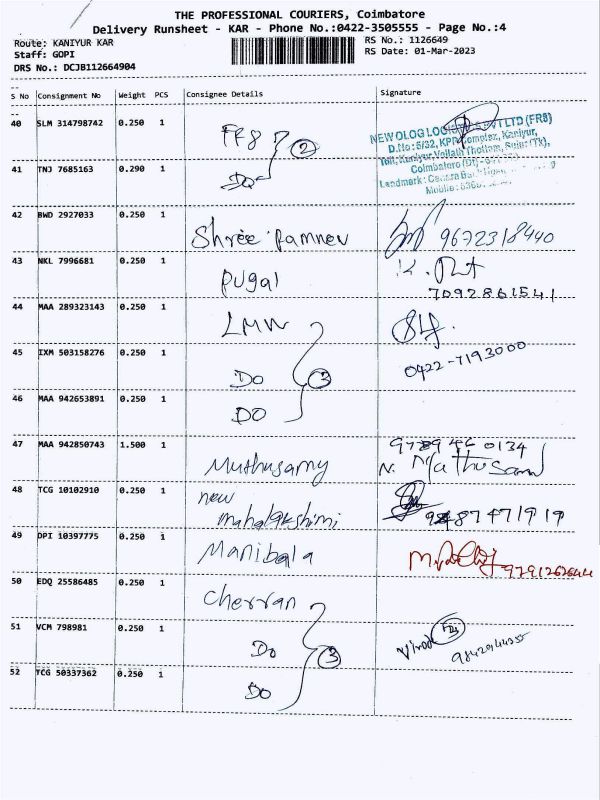 THE PROFESSIONAL COURIERS, Coimbatore
Delivery Runsheet - KAR - Phone No.:0422-3505555 - Page No.:4
Route: KANIYUR KAR
RS No.: 1126649
Staff: GOPI
RS Date: 01-Mar-2023
DRS No.: DCJB112664904
S No Consignment No Weight PCS Consignee Details Signature
40 SLM 314798742 0.250 1 FF8
NEW OLOG LOGISTICS PVT LTD (FR8)
D.No: 5/32, KPR Complex, Kaniyur,
Toll, Kaniyur, Vellath Thottam, Sulur (TK),
Coimbatore (Dt) -
Landmark: Canara Bank
Mobile:
41 TNJ 7685163 0.290 1 Do 2
42 BWD 2927033 0.250 1 Shree Ramnev 9672318440
43 NKL 7996681 0.250 1 Pugal K.
7092861541
44 MAA 289323143 0.250 1 LMW
0422-7193000
45 IXM 503158276 0.250 1 DO 3
46 MAA 942653891 0.250 1 DO
47 MAA 942850743 1.500 1 Muthusamy 9789460134
N. Muthusamy
48 TCG 10102910 0.250 1 new
mahalakshimi 9487471919
49 DPI 10397775 0.250 1 Manibala 9791262644
50 EDQ 25586485 0.250 1 Cherran
51 VCM 798981 0.250 1 Do 3 Vinod
9842944355
52 TCG 50337362 0.250 1 Do